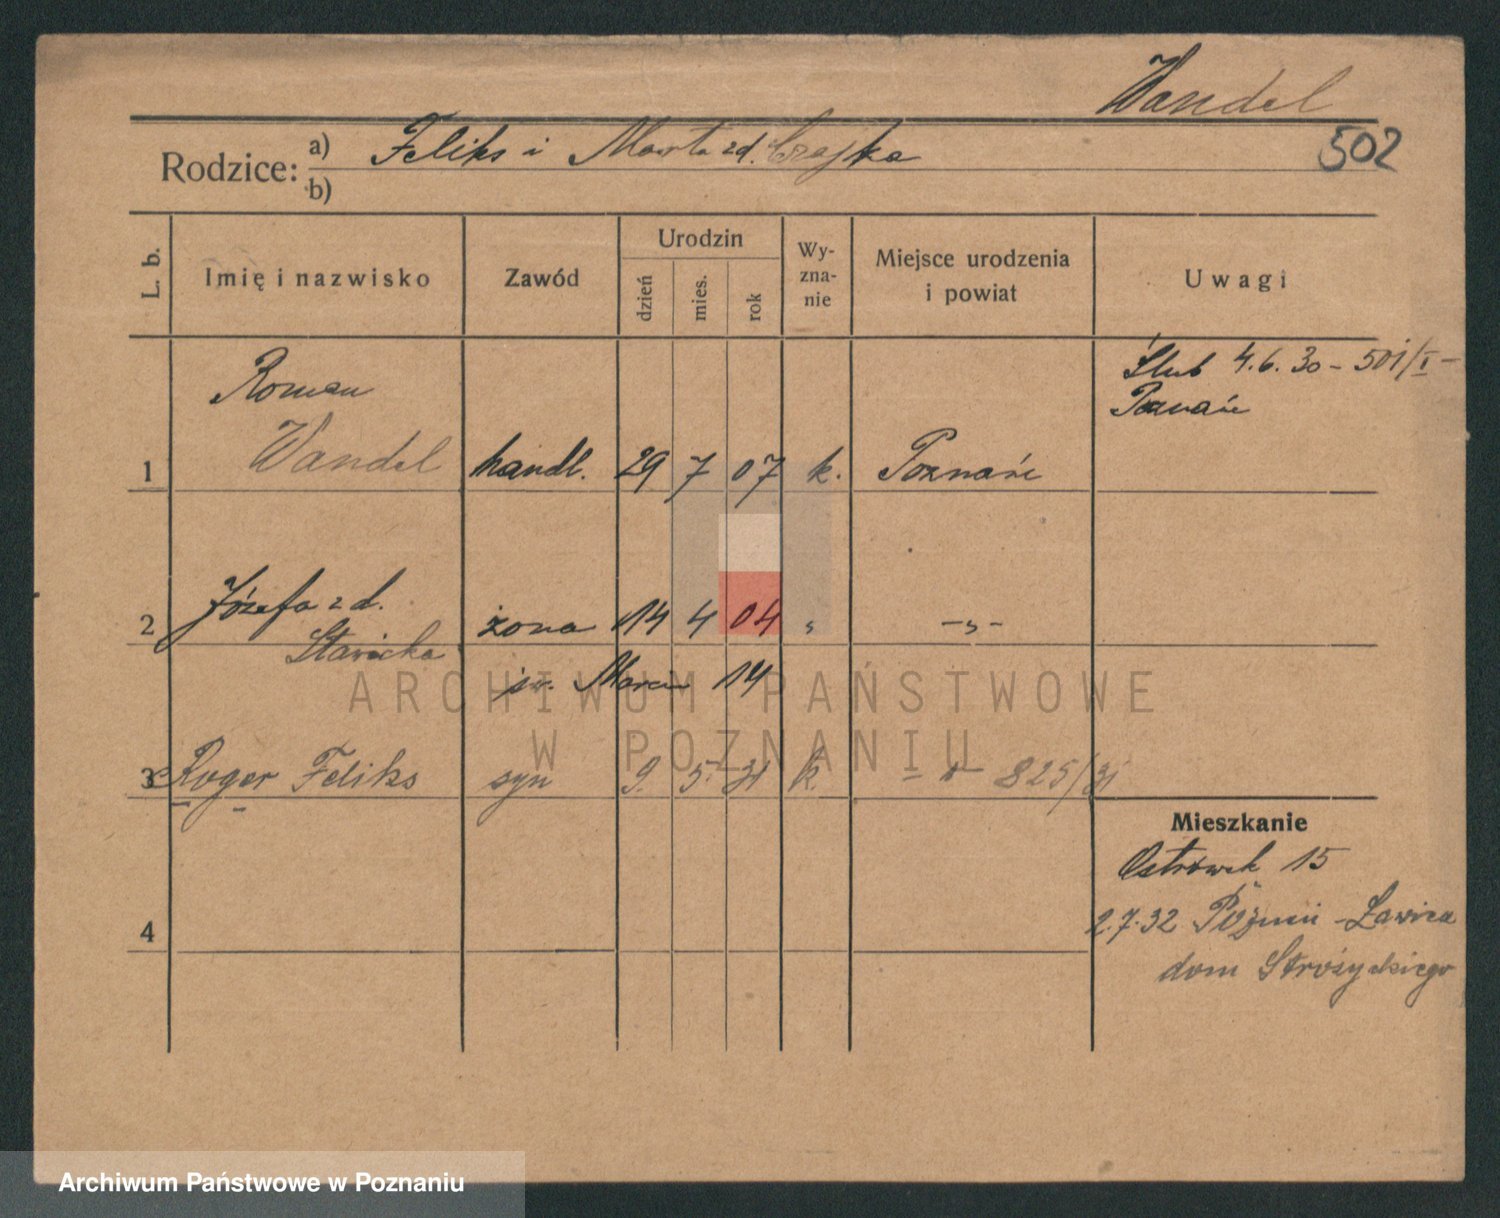 Wandel
502
Rodzice: a) Feliks i Marta zd. Czajka
b)
L. b.
Imię i nazwisko
Zawód
Urodzin
dzień
mies.
rok
Wy-
zna-
nie
Miejsce urodzenia
i powiat
Uwagi
Ślub 4.6.30 – 501/I –
Poznań
Roman
1 Wandel handl. 29 7 07 k. Poznań
2 Józefa zd. żona 14 4 04 " -"-
Stawicka
św. Marcin 14
3 Roger Feliks syn 9. 5. 31 k. – " – 825/31
Mieszkanie
Ostrówek 15
2.7.32 Poznań - Ławica
dom Strożyckiego
4
ARCHIWUM PAŃSTWOWE
W POZNANIU
Archiwum Państwowe w Poznaniu